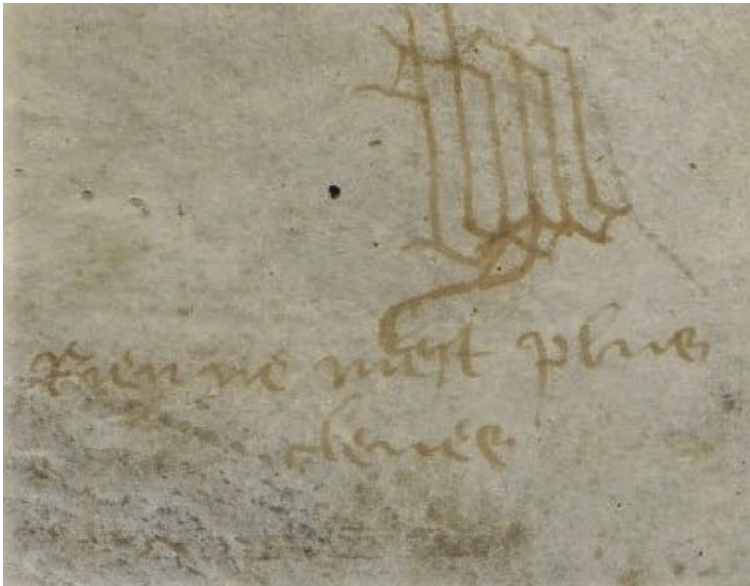 Rien ne mest plus
cleues